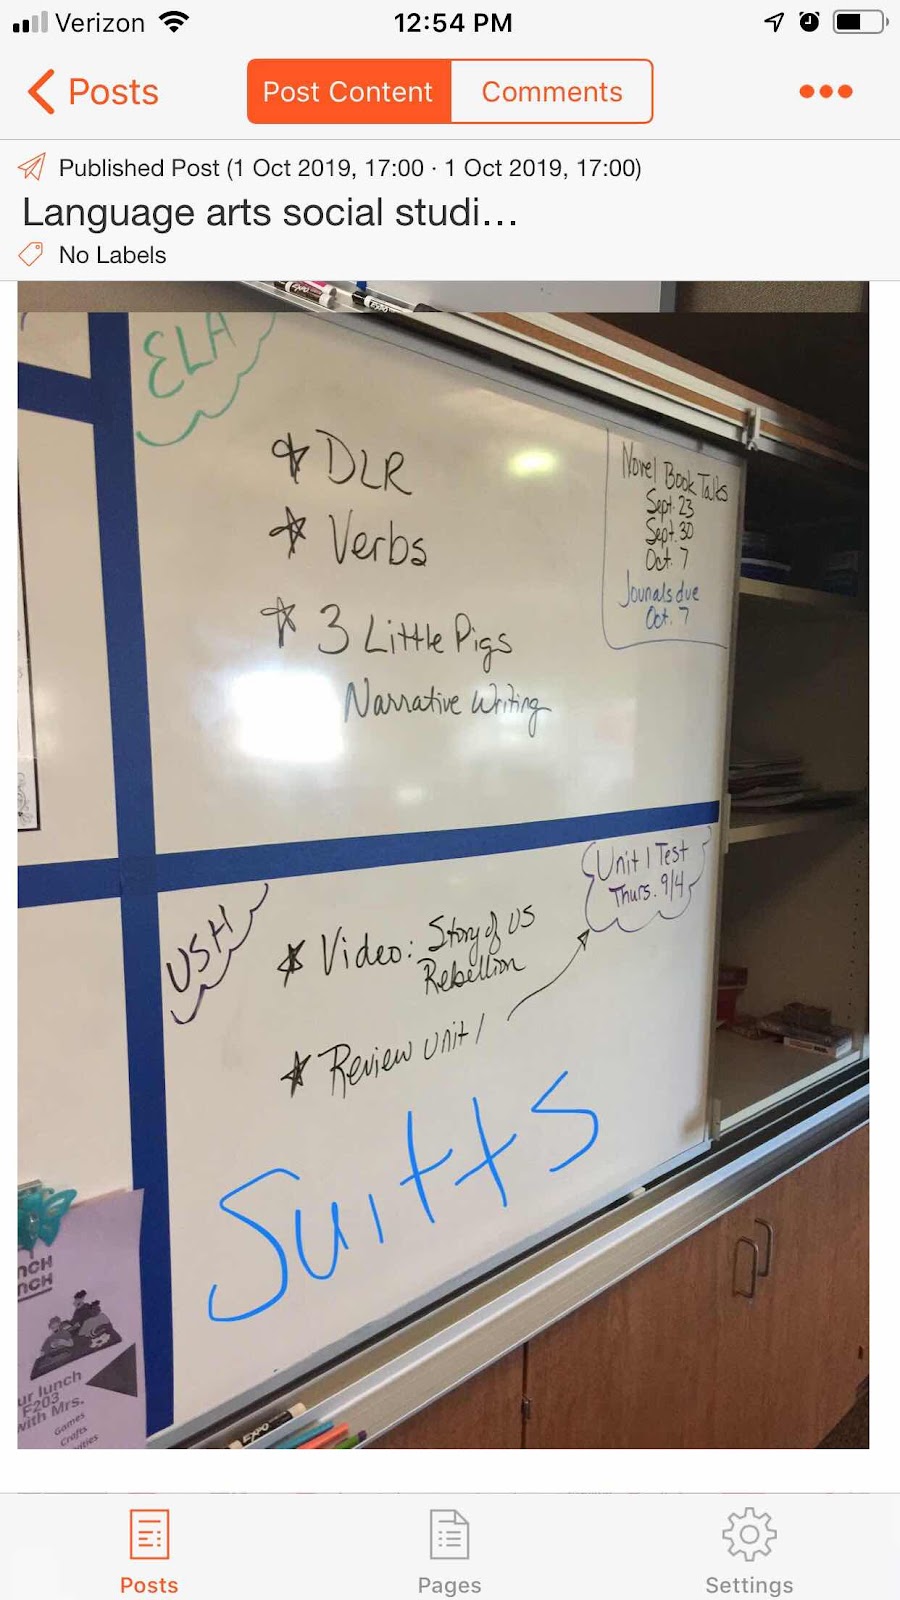 Verizon
12:54 PM
Posts
Post Content
Comments
Published Post (1 Oct 2019, 17:00 · 1 Oct 2019, 17:00)
Language arts social studi...
No Labels
EXPO
EXPO
ELA
DLR
Verbs
3 Little Pigs
Narrative Writing
Novel Book Talks
Sept. 23
Sept. 30
Oct. 7
Jounals due
Oct. 7
USH
Video: Story of US
Rebellion
Review Unit 1
Unit 1 Test
Thurs. 9/4
Suitts
NCH
NCH
ur lunch
F203
with Mrs.
Games
Crafts
EXPO
Posts
Pages
Settings